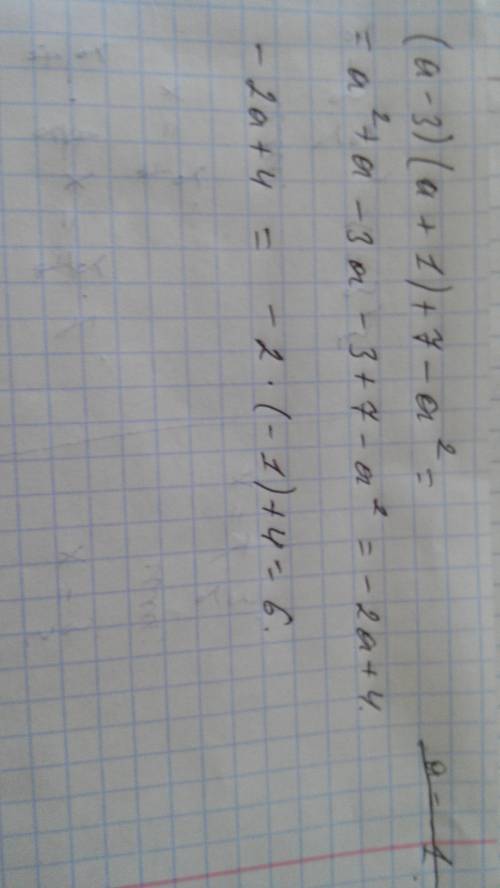 (a-3)(a+1)+7-a² =
= a²+a-3a-3+7-a² = -2a+4.
-2a+4 = -2·(-1)+4=6.